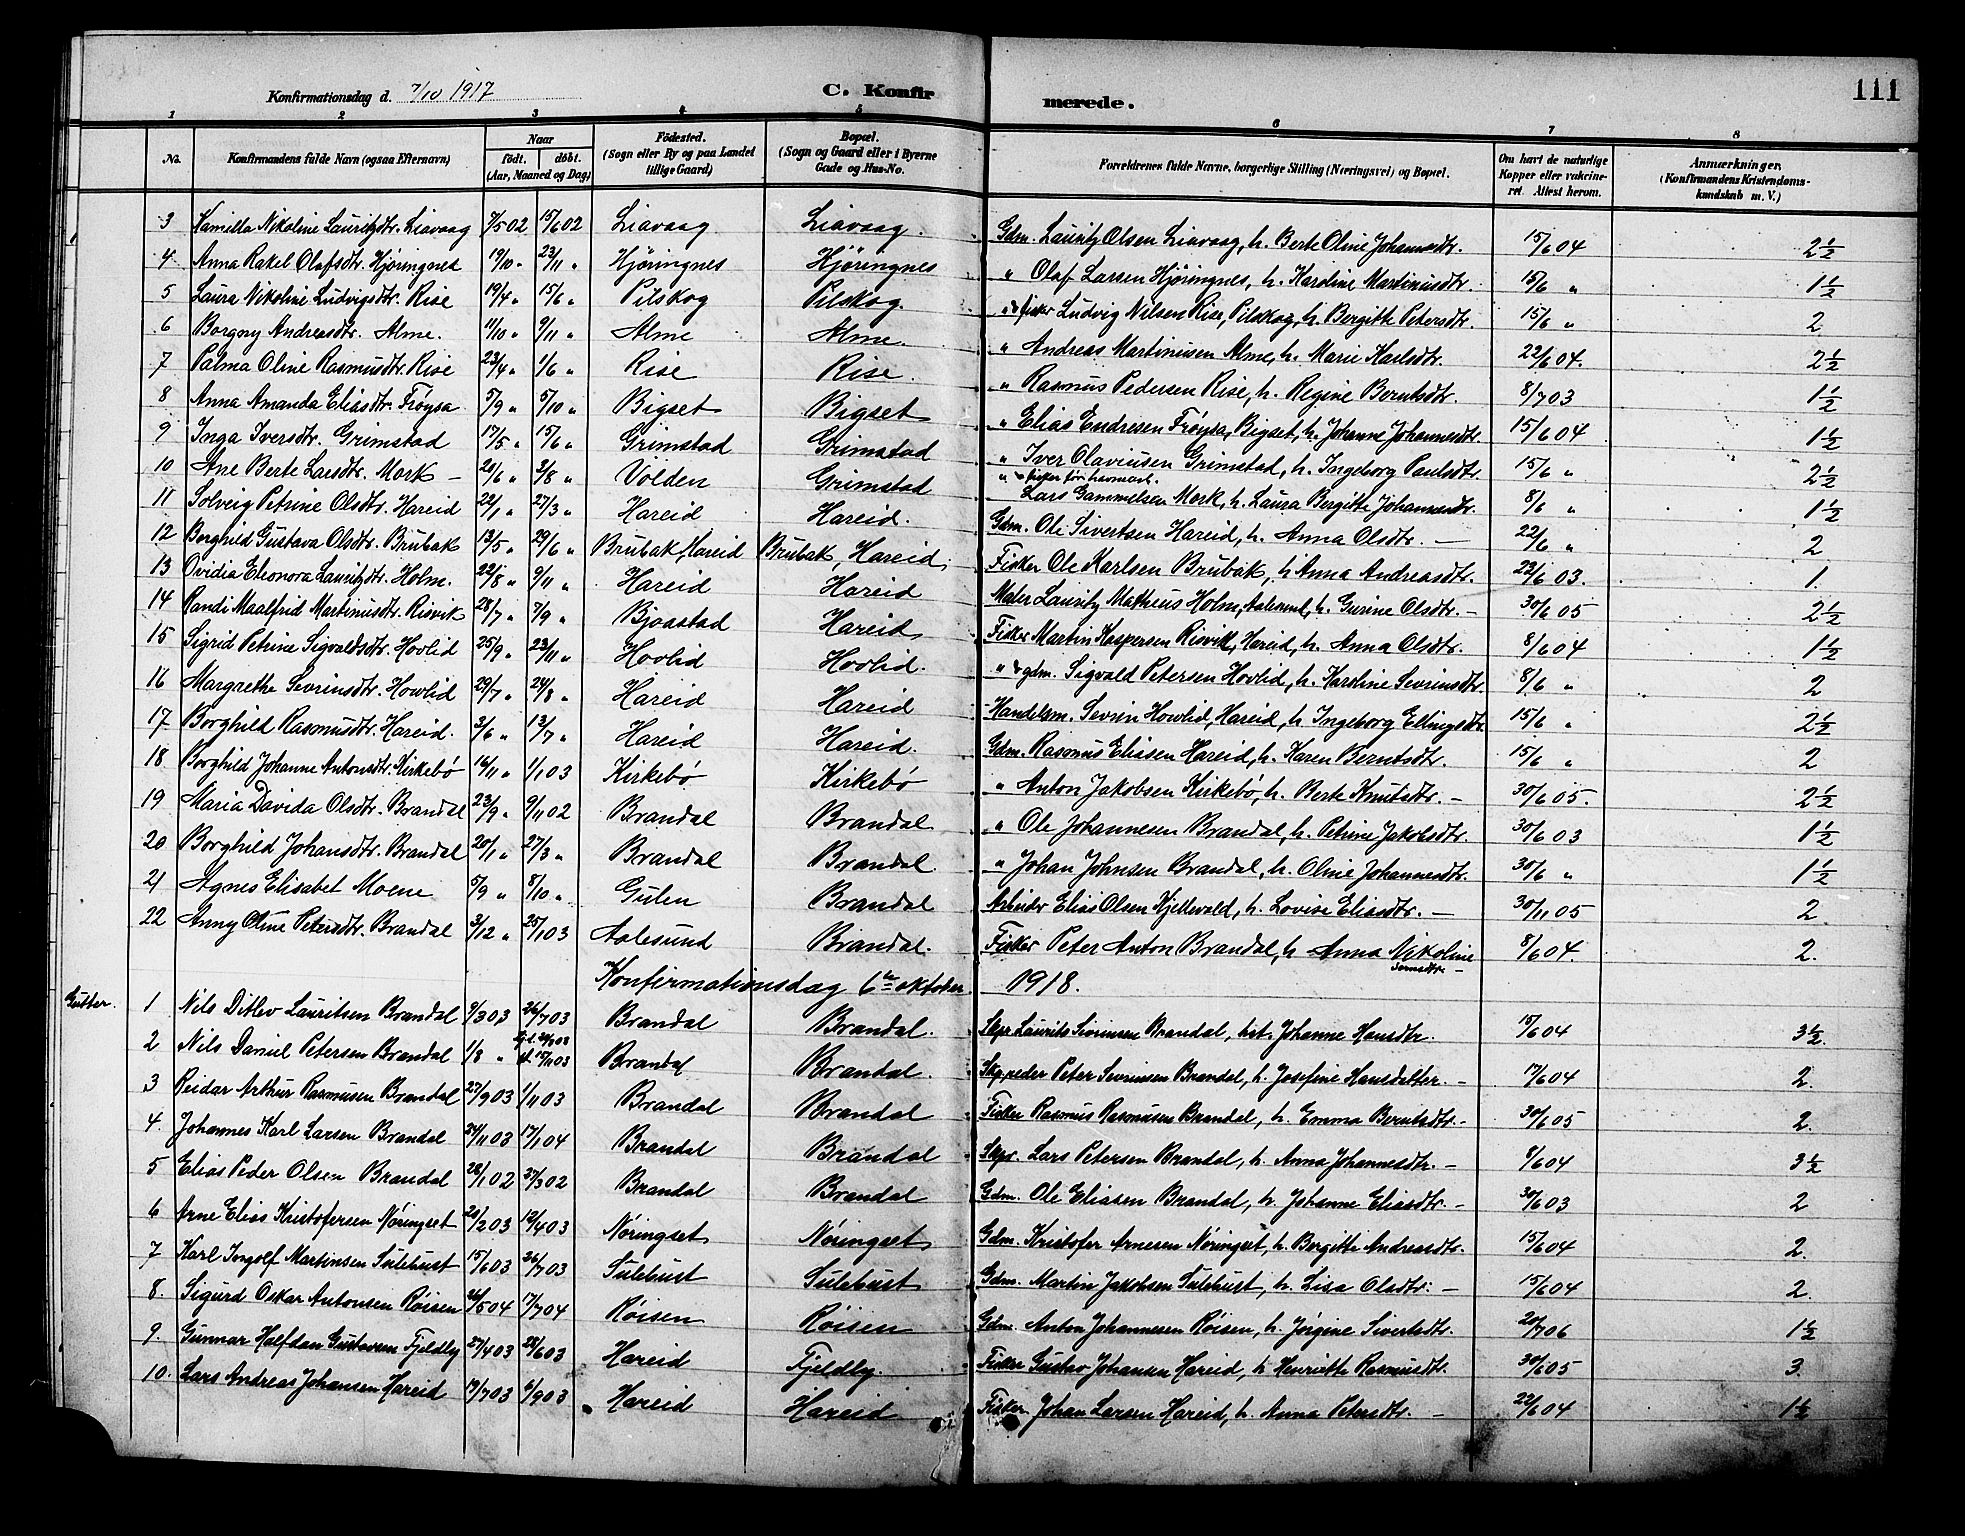 Konfirmationsdag d. 7/10 1917
C. Konfirmerede.
111
1 2 3 4 5 6 7 8
No.
Konfirmandens fulde Navn (ogsaa Efternavn)
Naar födt. döbt. (Aar, Maaned og Dag)
Födested. (Sogn eller By og paa Landet tillige Gaard)
Bopæl. (Sogn og Gaard eller i Byerne Gade og Hus-No.
Forældrenes fulde Navne, borgerlige Stilling (Næringsvei) og Bopæl.
Om havt de naturlige Kopper eller vakcineret. Attest herom.
Anmærkninger, (Konfirmandens Kristendomskundskab m. V.)
3 Kamilla Nikoline Lauritzdtr. Liavaag 7/5 02 15/6 02 Liavaag Liavaag. Gdm. Lauritz Olsen Liavaag, h. Berte Oline Johannesdtr. 15/6 04 2 1/2
4 Anna Rakel Olafsdtr. Hjøringnes 19/10 " 23/11 " Hjøringnes Hjøringnes " Olaf Larsen Hjøringnes, h. Karoline Martinusdtr. 15/6 " 1 1/2
5 Laura Nikoline Ludvigsdtr. Rise 19/4 " 15/6 " Pilskog Pilskog. " & fisker Ludvig Nilsen Rise, Pilskog, h. Bergitte Petersdtr. 15/6 " 2
6 Borgny Andreasdtr. Alme. 11/10 " 9/11 " Alme Alme. " Andreas Martinusen Alme, h. Marie Karlsdtr. 22/6 04. 2 1/2
7 Palma Oline Rasmusdtr. Rise 23/4 " 1/6 " Rise Rise. " Rasmus Pedersen Rise, h. Regine Berntsdtr. 8/7 03 1 1/2
8 Anna Amanda Eliasdtr. Frøysa 5/9 " 5/10 " Bigset Bigset " Elias Endresen Frøysa, Bigset, h. Johanne Johannesdtr. 15/6 04 1 1/2
9 Inga Iversdtr. Grimstad 17/5 " 15/6 " Grimstad Grimstad " Iver Olaviusen Grimstad, h. Ingeborg Paulsdtr. 15/6 " 2 1/2
10 Ane Berte Larsdtr. Mork – 20/6 " 3/8 " Volden Grimstad " Lars Gammelsen Mork, h. Laura Bergitte Johannesdtr. 8/6 " 1 1/2
11 Solveig Petrine Olsdtr. Hareid 22/1 " 27/3 " Hareid Hareid. Gdm. Ole Sivertsen Hareid, h. Anna Olsdtr. – 22/6 " 2
12 Borghild Gustava Olsdtr. Brubak 13/5 " 29/6 " Brubak, Hareid Brubak, Hareid. Fisker Ole Karlsen Brubak, h. Anna Andreasdtr. 22/6 03. 1.
13 Ovidia Eleonora Lauritzdtr. Holm. 22/8 " 9/11 " Hareid Hareid Maler Lauritz Matheus Holm, Aalesund, h. Gurine Olsdtr. – 30/6 05 2 1/2
14 Randi Maalfrid Martinusdtr. Risvik 28/7 " 7/9 " Bjaastad Hareid Fisker Martin Kaspersen Risvik, Hareid, h. Anna Olsdtr. 8/6 04 1 1/2
15 Sigrid Petrine Sigvaldsdtr. Hovlid 25/9 " 23/11 " Hovlid Hovlid. " & gdm. Sigvald Petersen Hovlid, h. Karoline Sevrinsdtr. 8/6 " 2
16 Margrethe Sevrinsdtr. Howlid 29/7 " 24/8 " Hareid Hareid Handelsm. Sevrin Howlid, Hareid, h. Ingeborg Ellingsdtr. 15/6 " 2 1/2
17 Borghild Rasmusdtr. Hareid. 3/6 " 13/7 " Hareid Hareid. Gdm. Rasmus Eliasen Hareid, h. Karen Berntsdtr. 15/6 " 2
18 Borghild Johanne Antonsdtr. Kirkebø 16/11 " 1/1 03 Kirkebø Kirkebø " Anton Jakobsen Kirkebø, h. Berte Knutsdtr. – 30/6 05. 2 1/2
19 Maria Davida Olsdtr. Brandal 23/9 " 9/11 02 Brandal Brandal " Ole Johannesen Brandal, h. Petrine Jakobsdtr. 30/6 03 1 1/2
20 Borghild Johansdtr. Brandal 20/1 " 27/3 " Brandal Brandal. " Johan Johnsen Brandal, h. Oline Johannesdtr. 30/6 " 1 1/2
21 Agnes Elisabet Moene 5/9 " 8/10 " Gulen Brandal Arbeider Elias Olsen Hjellevold, h. Lovise Eliasdtr. – 30/11 05 2.
22 Anny Oline Petersdtr. Brandal 3/12 " 25/1 03 Aalesund Brandal. Fisker Peter Anton Brandal, h. Anna Nikoline 8/6 04. 2.
Konfirmationsdag 6te oktober 1918.
Gutter.
1 Nils Ditlev Lauritsen Brandal 9/3 03 26/7 03 Brandal Brandal. Skpr. Laurits Sevrinsen Brandal, hst. Johanne Hansdtr. 15/6 04 3 1/2
2 Nils Daniel Petersen Brandal 1/8 " Brandal Brandal. Skp.reder Peter Sevrinsen Brandal, h. Josefine Hansdatter. – 17/6 04 2.
3 Reidar Arthur Rasmusen Brandal 27/9 03 1/11 03 Brandal Brandal Fisker Rasmus Rasmusen Brandal, h. Emma Berntsdtr. – 30/6 05 2.
4. Johannes Karl Larsen Brandal 24/11 03 17/1 04 Brandal Brandal Skpr. Lars Petersen Brandal, h. Anna Johannesdtr. – 8/6 04 3 1/2
5 Elias Peder Olsen Brandal 28/1 02 27/3 02 Brandal Brandal Gdm. Ole Eliasen Brandal, h. Johanne Eliasdtr. – 30/6 03 2
6 Arne Elias Kristofersen Nøringset 20/2 03 12/4 03 Nøringset Nøringset Gdm. Kristofer Arnesen Nøringset, h. Bergitte Andreasdtr. 15/6 04 2.
7 Karl Ingolf Martinsen Sulehust 15/6 03 26/7 03 Sulehust Sulehust Gdm. Martin Jakobsen Sulehust, h. Lisa Olsdtr. – 15/6 04 2.
8. Sigurd Oskar Antonsen Røisen 26/5 04 17/7 04 Røisen Røisen Gdm. Anton Johannesen Røisen, h. Jørgine Sivertsdtr. 20/7 06 1 1/2
9. Gunnar Halfdan Gustavsen Fjeldby 27/4 03 28/6 03 Hareid Fjeldby. Fisker Gustav Johansen Hareid, h. Henriette Rasmusdtr. 30/6 05 3.
10. Lars Andreas Johansen Hareid 19/7 03 6/9 03 Hareid Hareid Fisker Johan Larsen Hareid, h. Anna Petersdtr. – 22/6 04 1 1/2